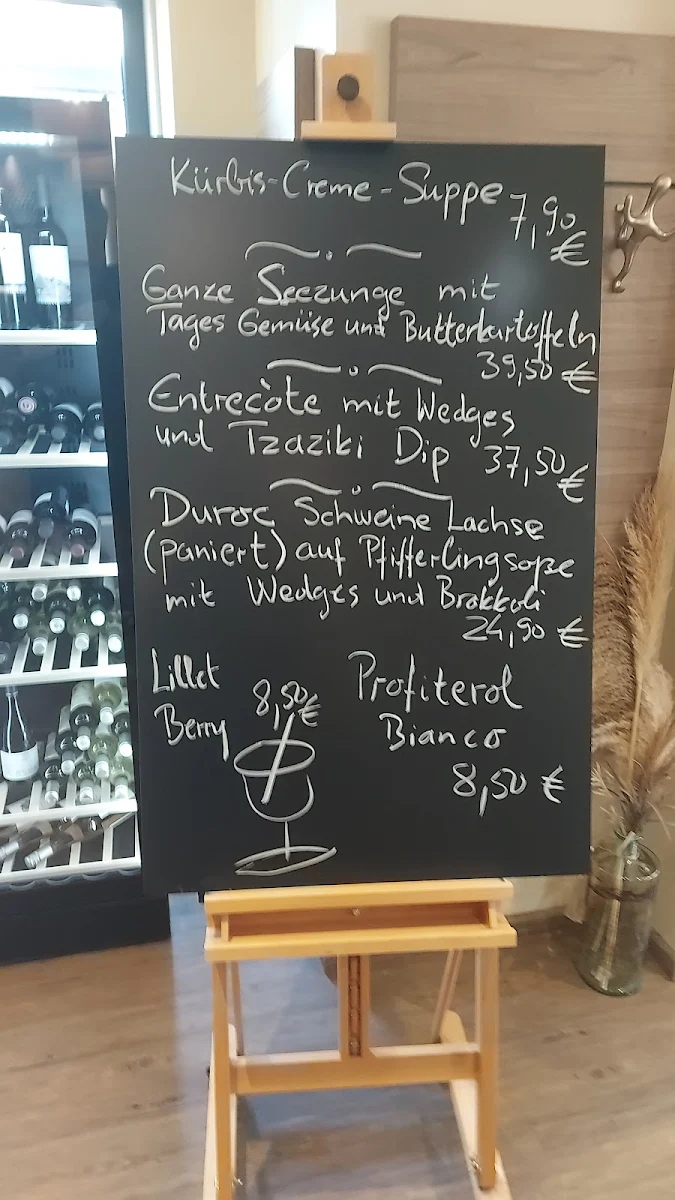 Kürbis-Creme-Suppe 7,90 €
Ganze Seezunge mit
Tages Gemüse und Butterkartoffeln
39,50 €
Entrecòte mit Wedges
und Tzaziki Dip 37,50 €
Duroc Schweine Lachse
(paniert) auf Pfifferlingsoße
mit Wedges und Brokkoli
24,90 €
Lillet
Berry 8,50 €
Profiterol
Bianco
8,50 €